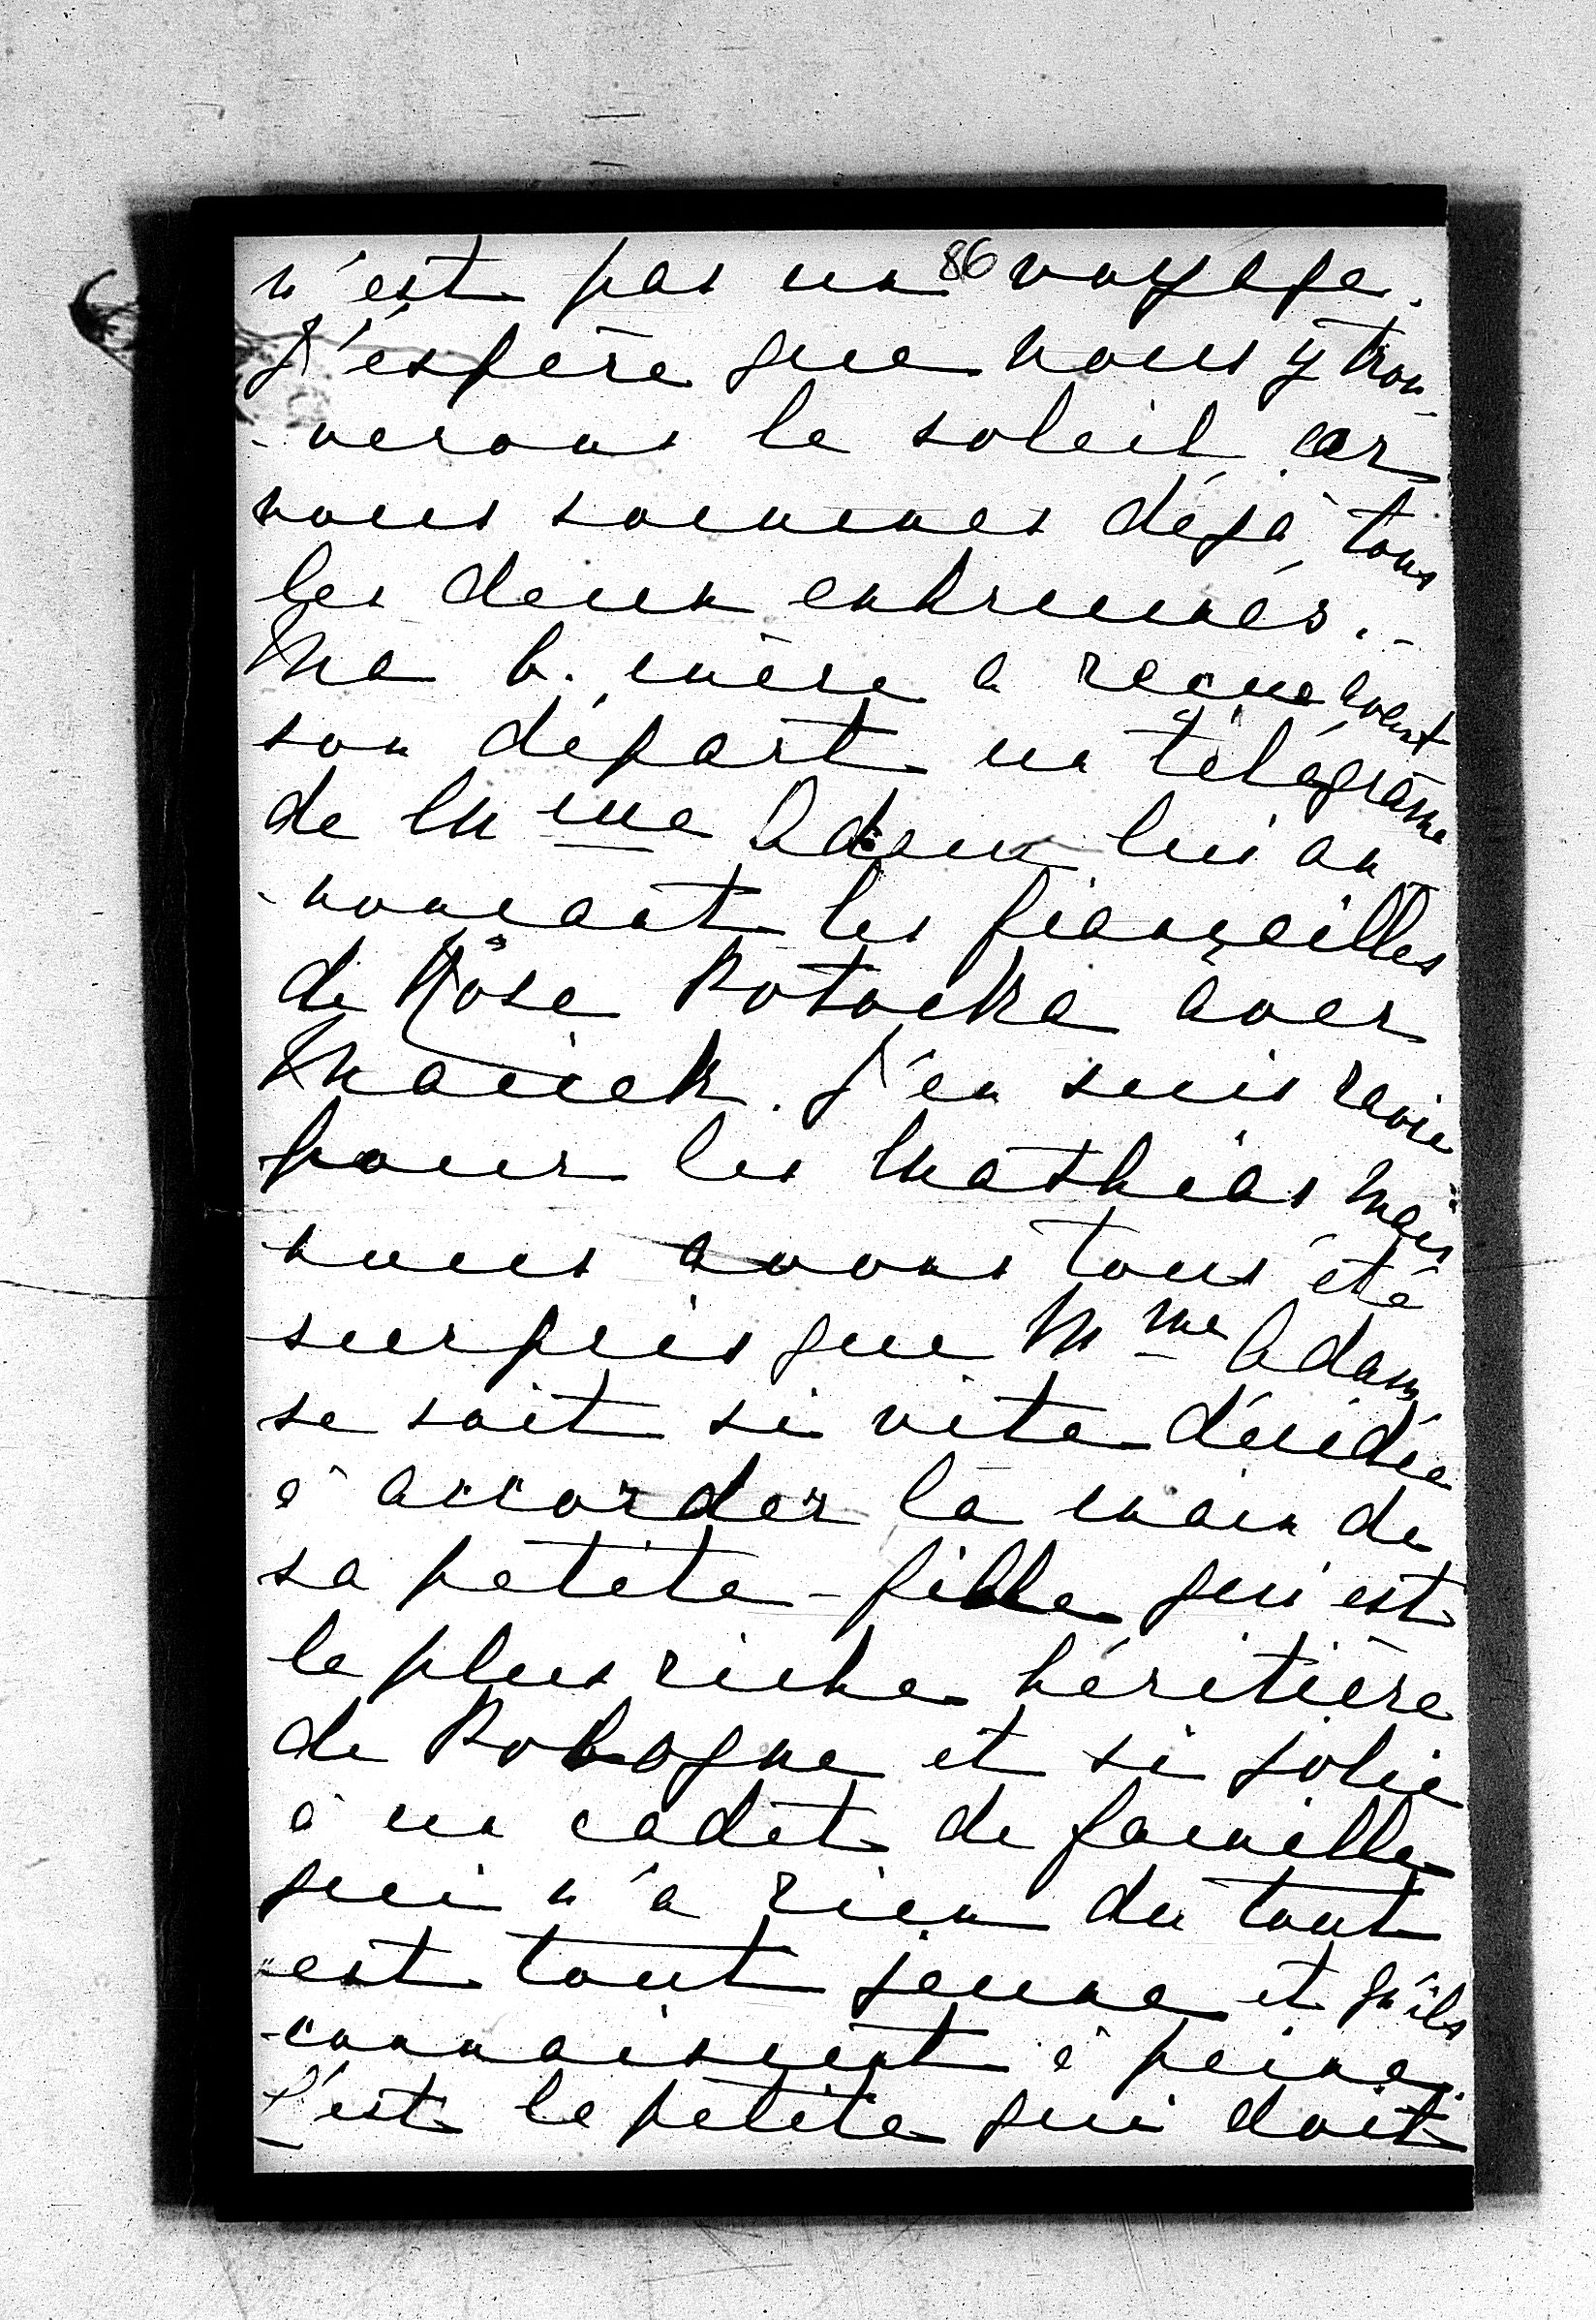 n'est pas un 86 voyage.
J'espère que nous y trou-
-verons le soleil car
nous sommes déjà tous
les deux enrhumés. -
Ma b. mère a reçu avant
son départ un télégramme
de Mme Adam lui an-
-nonçant les fiançailles
de Rose Potocka avec
Maciek. J'en suis ravie
pour les Mathias mais
nous avons tous été
surpris que Mme Adam
se soit si vite décidée
à accorder la main de
sa petite-fille qui est
la plus riche héritière
de Pologne et si jolie
à un cadet de famille
qui n'a rien du tout
est tout jeune et qu'ils
connaissent à peine.
C'est la petite qui doit